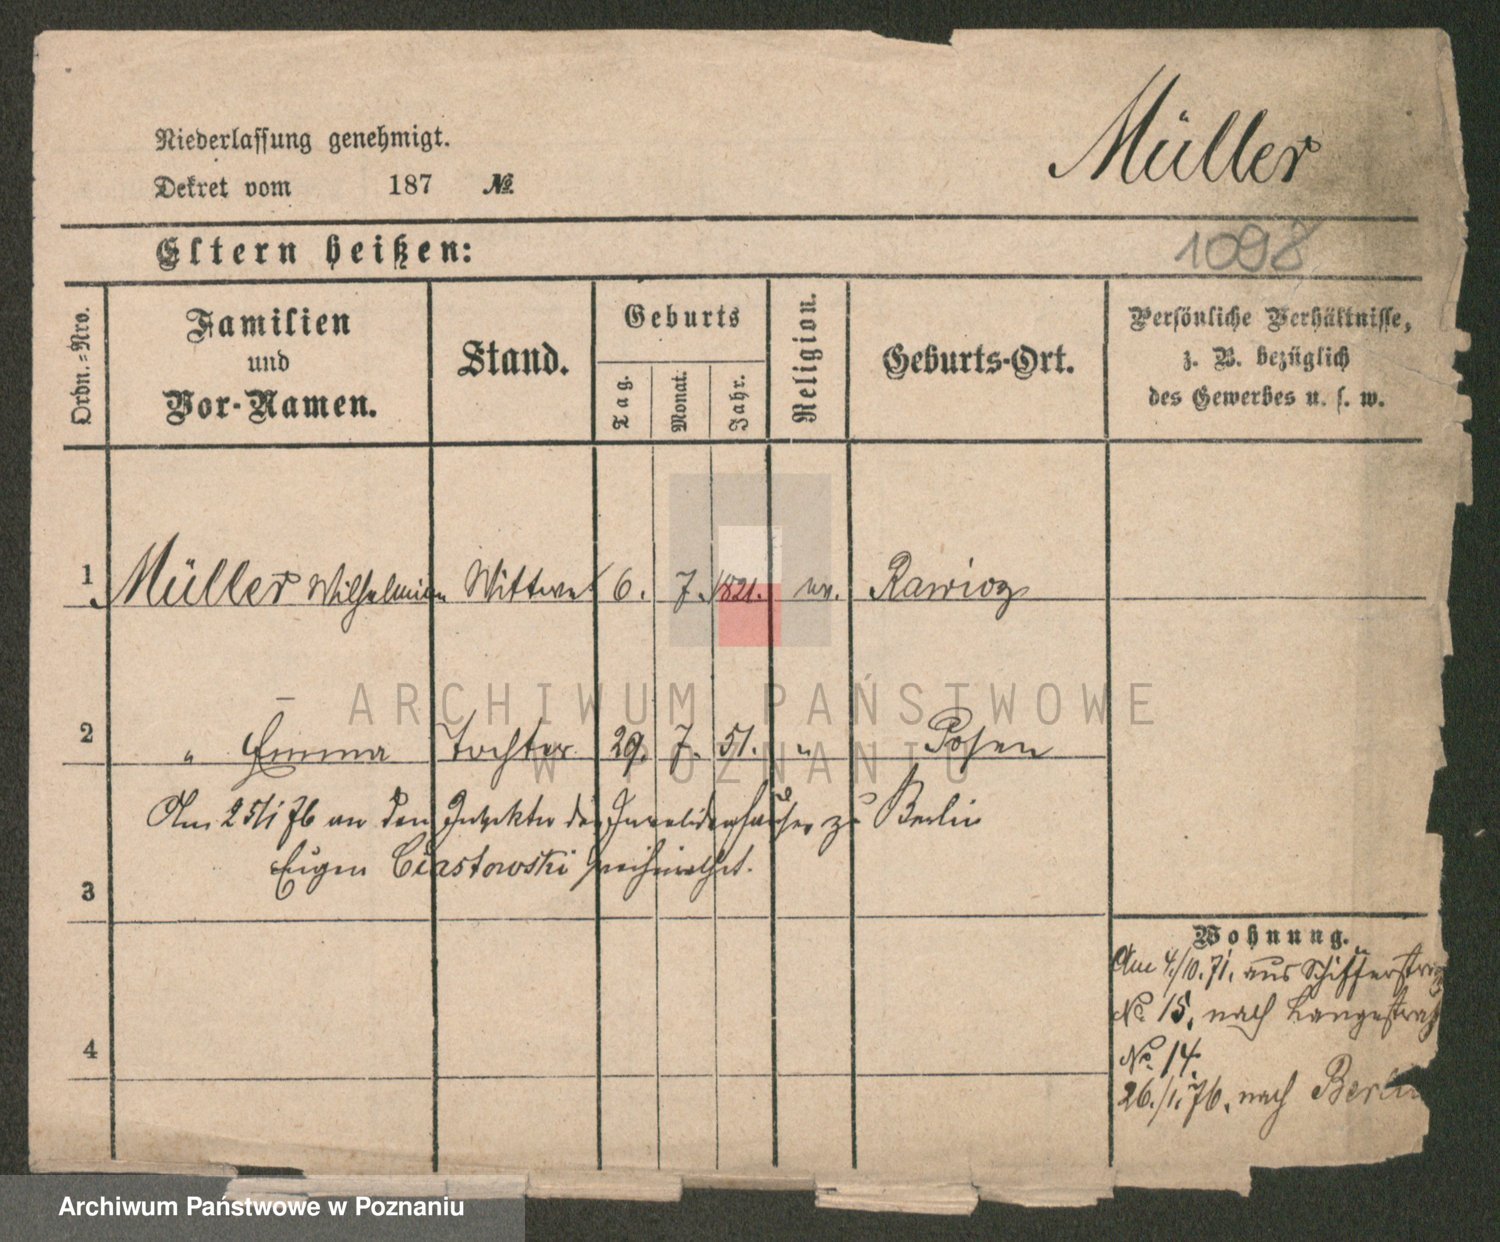 Müller
Niederlassung genehmigt.
Dekret vom 187 №
1098
Eltern heißen:
Ordn.=Nro.
Familien
und
Vor-Namen.
Stand.
Geburts
Tag.
Monat.
Jahr.
Religion.
Geburts-Ort.
Persönliche Verhältnisse,
z. B. bezüglich
des Gewerbes u. s. w.
1 Müller Wilhelmine Wittwe 6. 7. 1821. ev. Rawicz
2 " Emma Tochter 29. 7. 51. " Posen
Am 25/1 76 an den Inspektor des Invalidenhauses zu Berlin
Eugen Ciastowski verheirathet.
3
4
Wohnung.
Am 4./10. 71. aus Schifferstr
No. 15. nach Langestraß
No. 14.
26./1. 76. nach Berlin
ARCHIWUM PAŃSTWOWE
W POZNANIU
Archiwum Państwowe w Poznaniu